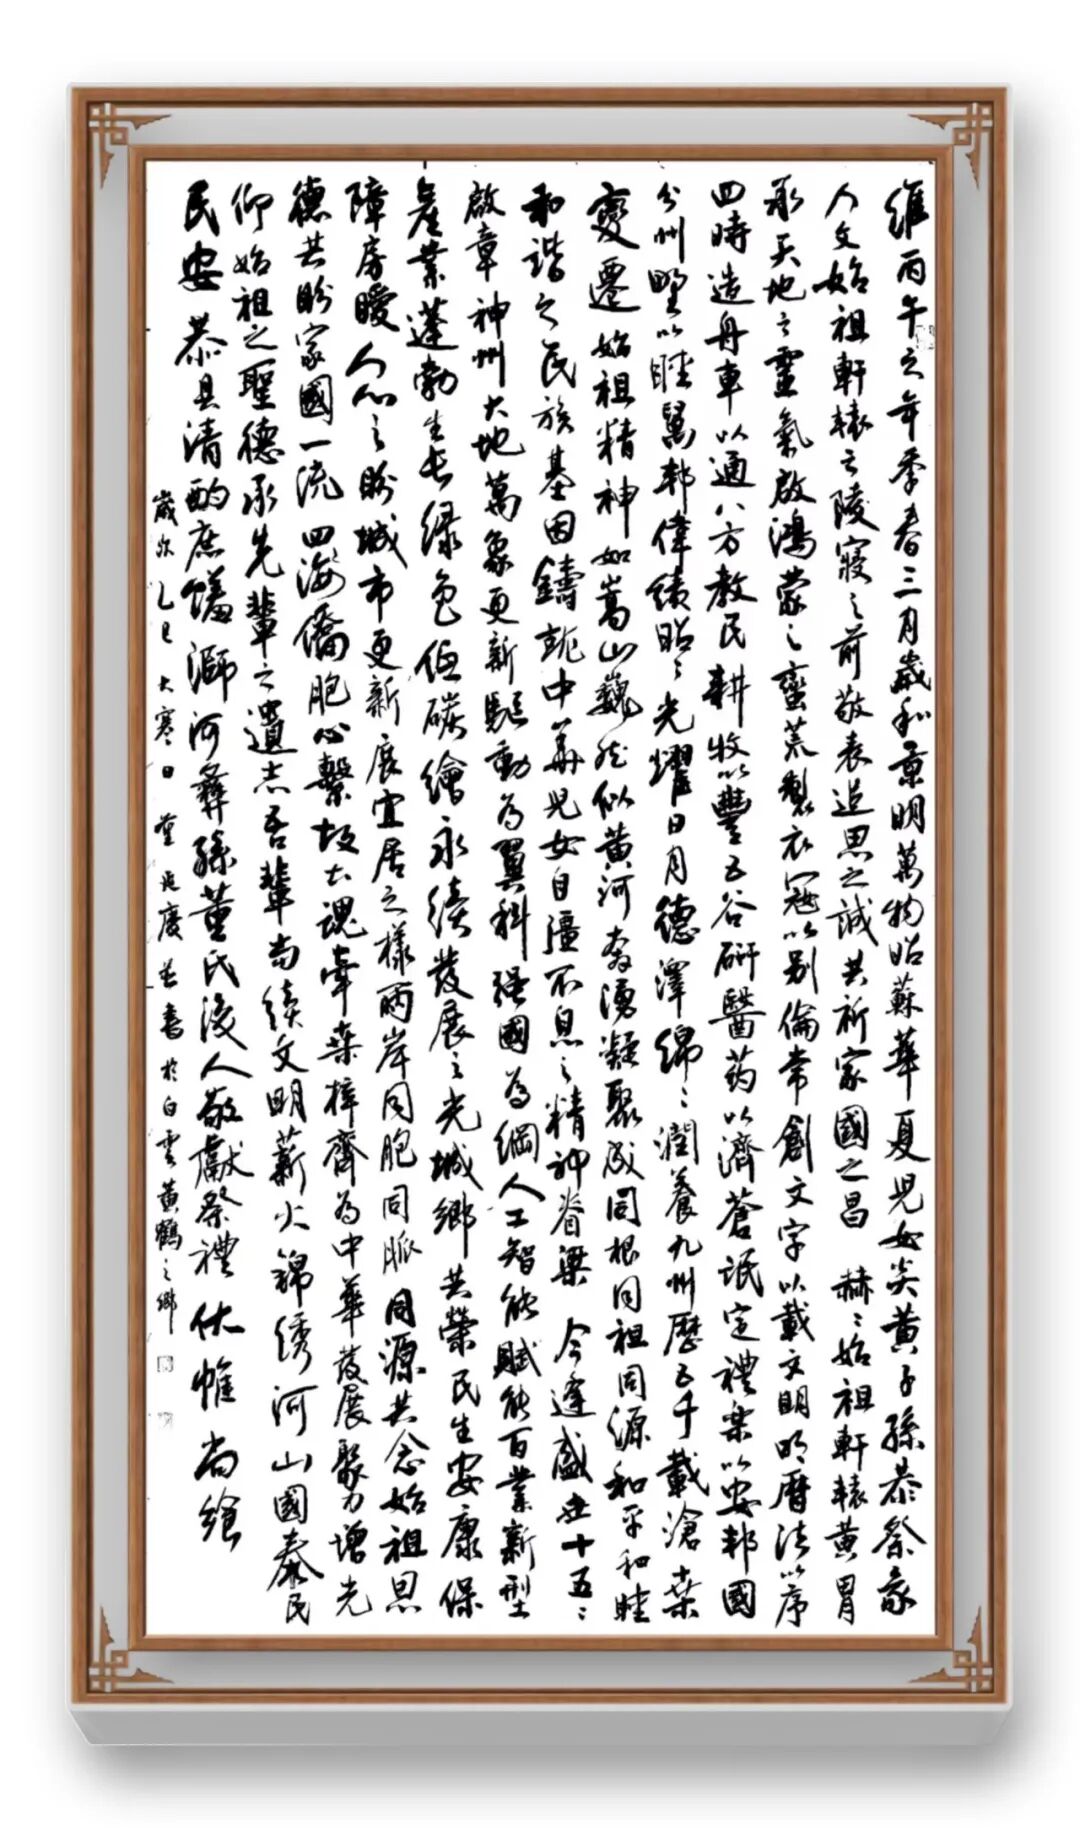 維丙午之年季春三月歲和景明萬物昭蘇華夏兒女炎黃子孫恭祭我
人文始祖軒轅之陵寢之前敬表追思之誠共祈家國之昌赫〻始祖軒轅黃胄
承天地之靈氣啟鴻蒙之蠻荒製衣冠以别倫常創文字以載文明明曆法以序
四時造舟車以通八方教民耕牧以豐五谷研醫药以濟蒼氓定禮樂以安邦國
分州野以睦萬邦偉績昭〻光耀日月德澤綿〻潤養九州歷五千載滄桑
變遷始祖精神如嵩山巍然似黄河奔湧凝聚成同根同祖同源和平和睦
和諧之民族基因鑄就中華兒女自彊不息之精神脊梁今逢盛世十五〻
啟章神州大地萬象更新驅動為翼科强國為綱人工智能賦能百業新型
產業蓬勃生長绿色低碳繪永續發展之光城鄉共榮民生安康保
障房暖人心之盼城市更新展宜居之樣兩岸同胞同脈同源共念始祖恩
德共盼家國一流四海僑胞心繫故土魂牽桑梓齊為中華發展聚力增光
仰始祖之聖德承先輩之遺志吾輩当續文明薪火錦绣河山國泰民
民安恭具清酌庶饈溮河彝孫董氏後人敬獻祭禮伏惟尚飨
歲次乙巳大寒日董 慶 書於白雲黄鶴之鄉